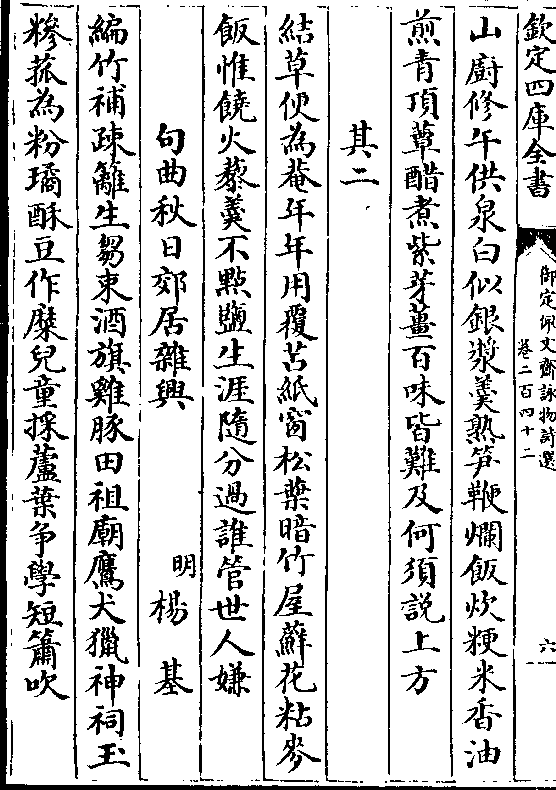 欽定四庫全書
御定佩文齋詠物詩選
卷二百四十二
六
山廚修午供泉白似銀漿羮熟笋鞭爛飯炊粳米香油
煎青頂蕈醋煮紫芽薑百味皆難及何須説上方
其二
結草便為菴年年用覆苫紙窗松葉暗竹屋蘚花粘麥
飯惟饒火藜羮不㸃鹽生涯隨分過誰管世人嫌
句曲秋日郊居雜興
明 楊基
編竹補疎籬生芻束酒旗雞豚田祖廟鷹犬獵神祠玉
糝菰為粉璚酥豆作糜兒童採蘆葉争學短簫吹